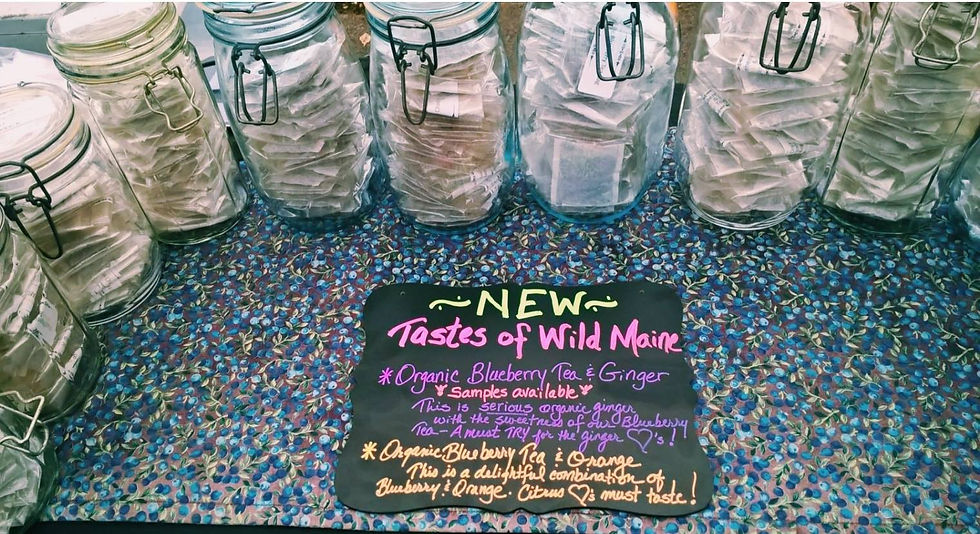 ~NEW~
Tastes of Wild Maine
*Organic Blueberry Tea & Ginger
Samples available
This is serious organic ginger
with the sweetness of our Blueberry
Tea - A must TRY for the ginger ♡'s!
*Organic Blueberry Tea & Orange
This is a delightful combination of
Blueberry & Orange. Citrus ♡'s must taste!